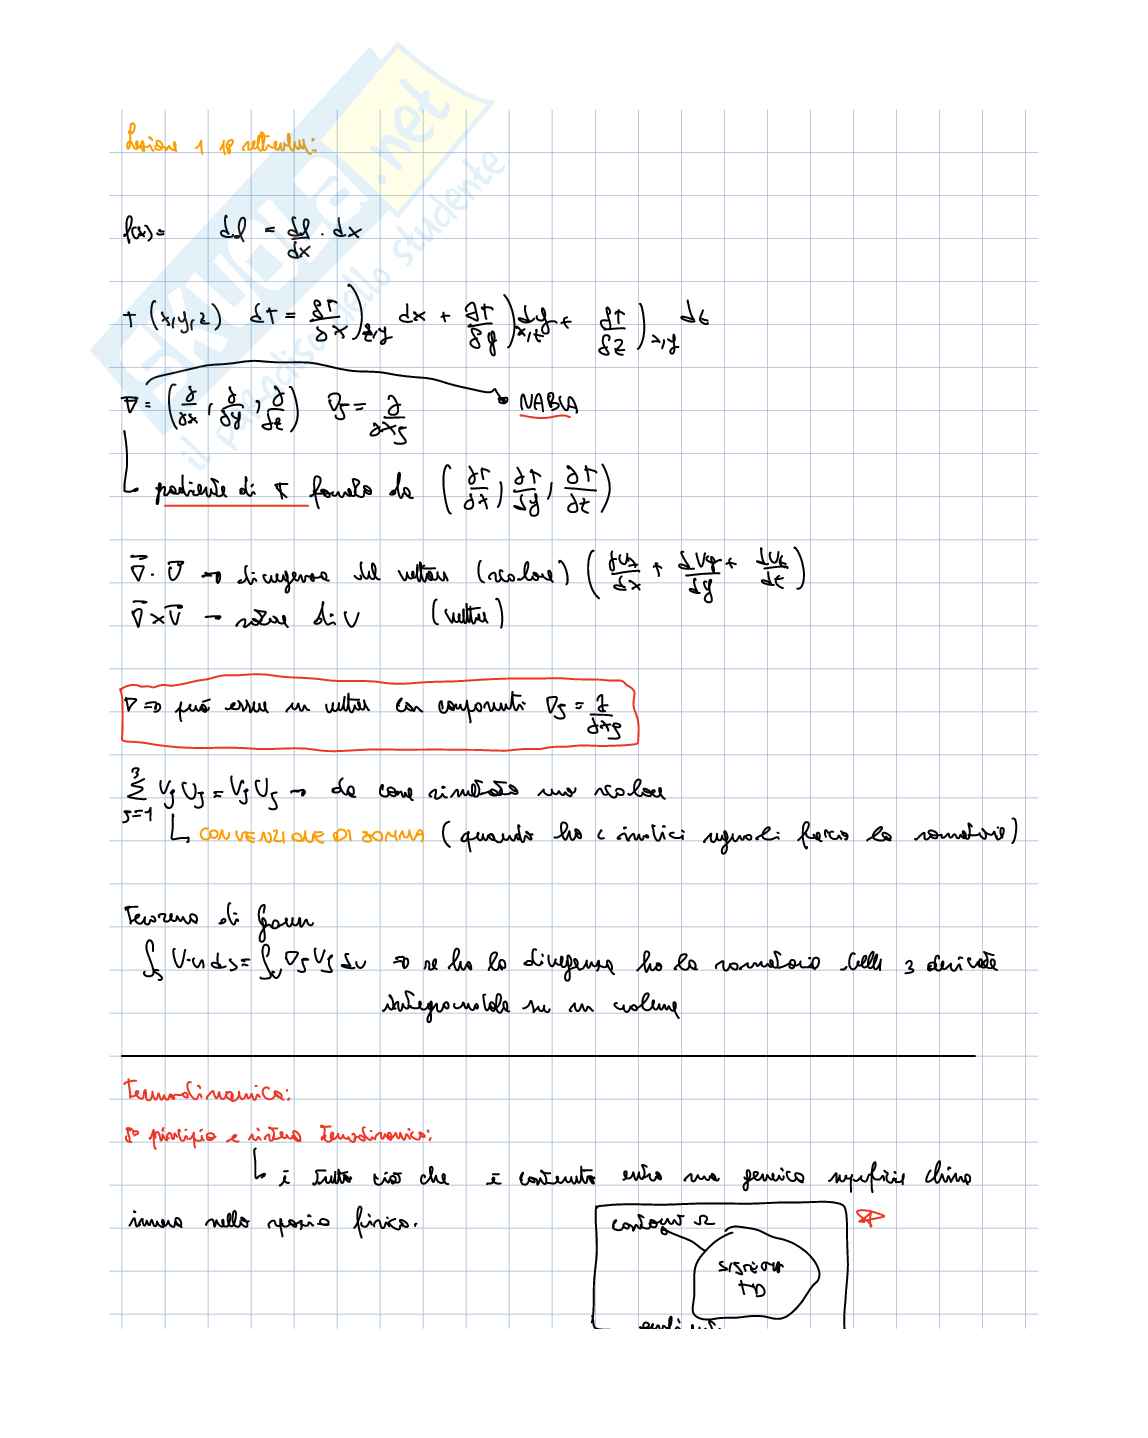 Lezione 1 18 settembre:
SKUOLA.net
il paradiso dello studente
f(x)= df = df/dx · dx
T (x,y,z) dT = ∂T/∂x)z,y dx + ∂T/∂y)x,z dy + ∂T/∂z)x,y dz
∇ = (∂/∂x, ∂/∂y, ∂/∂z) ∇j = ∂/∂xj → NABLA
gradiente di T formato da (∂T/∂x, ∂T/∂y, ∂T/∂z)
∇·V → divergenza del vettore (scalare) (∂Vx/∂x + ∂Vy/∂y + ∂Vz/∂z)
∇×V → rotore di V (vettore)
∇ => può essere un vettore con componenti ∇j = ∂/∂xj
3 Σ j=1 Vj Uj = Vj Uj → da come risultato uno scalare
CONVENZIONE DI SOMMA (quando ho indici uguali faccio la sommatoria)
Teorema di Gauss
∫s V·n ds = ∫v ∇j Vj dv => se ho la divergenza ho la sommatoria delle 3 derivate
integrandola su un volume
Termodinamica:
principio e sistema termodinamico:
è tutto ciò che è contenuto entro una generica superficie chiusa
immersa nello spazio fisico.
contorno Ω
SISTEMA
TD